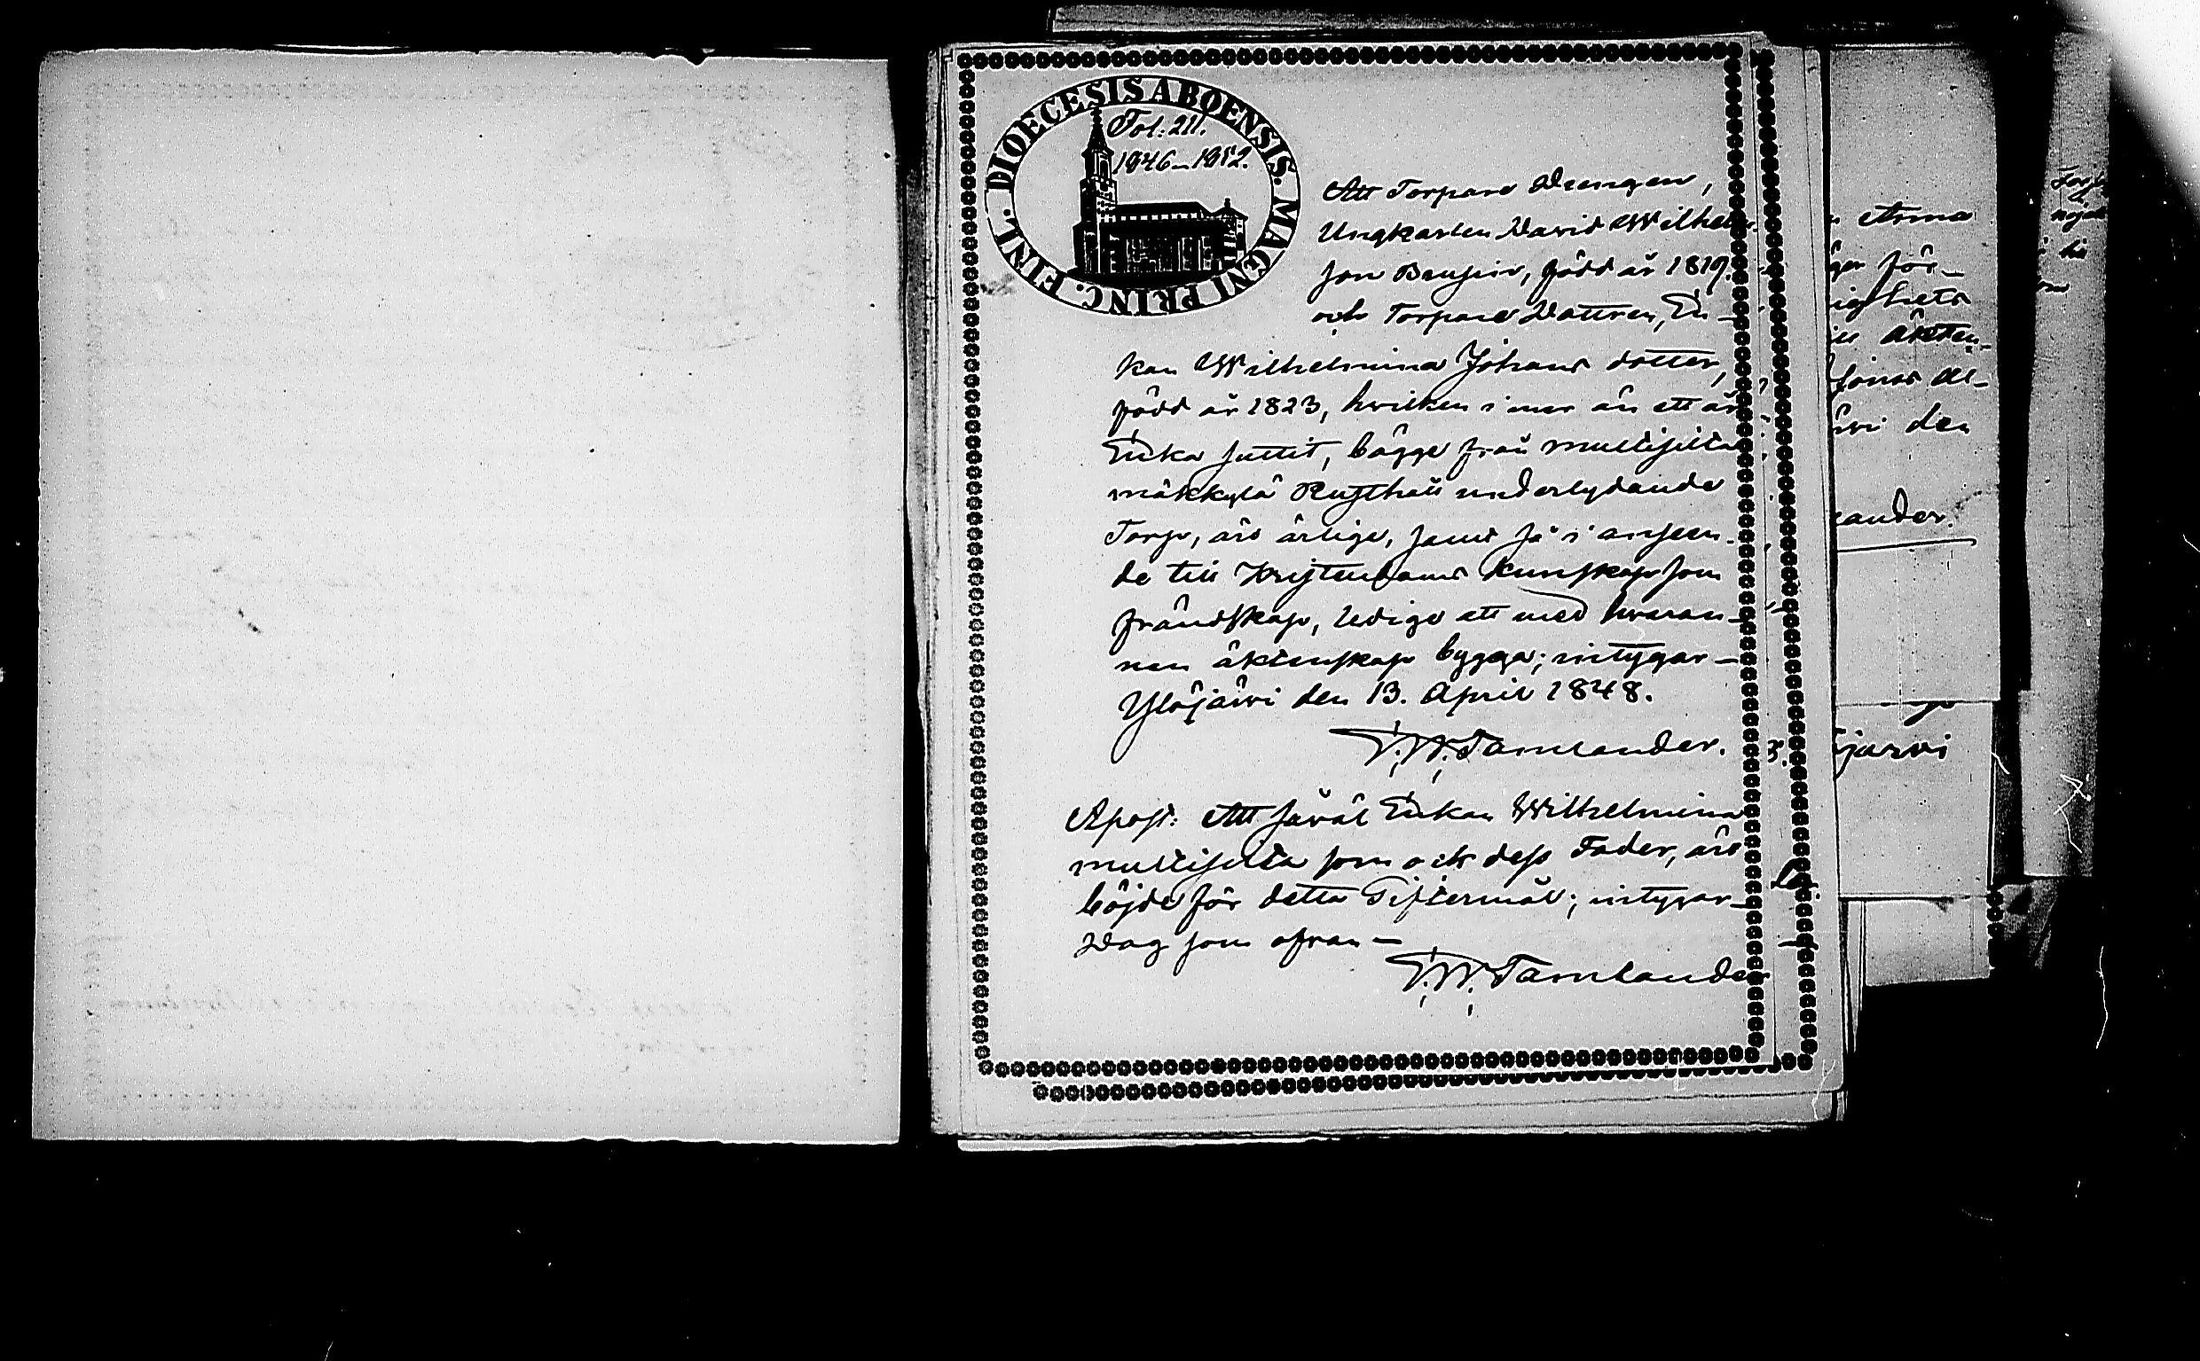 DIOECESIS ABOENSIS. MAGNI PRINC. FINL.
Fol: 211.
1846–1852.
Att Torpare Drengen,
Ungkarlen David Wilhelms
son, född år 1819.
och Torpare Dottren, En-
kan Wilhelmina Johans dotter,
född år 1823, hvilken i mer än ett år
Enka suttit, bägge från Mullisilta
mäkkylä Rusthåll underlydande
Torp, äro ärlige, samt så i anseen-
de till Kristendoms kunskap som
frändskap, ledige att med hvaran-
nan äktenskap bygga; intygar–
Ylöjärvi den 13. April 1848.
F. W. Tamlander.
Apost: Att såväl Enkan Wilhelmina
Mullisilta som ock dess Fader, äro
böjde för detta Giftermål; intygar–
Dag som ofvan –
F. W. Tamlander
Anna
för-
ighets
äkten-
den
ander.
järvi